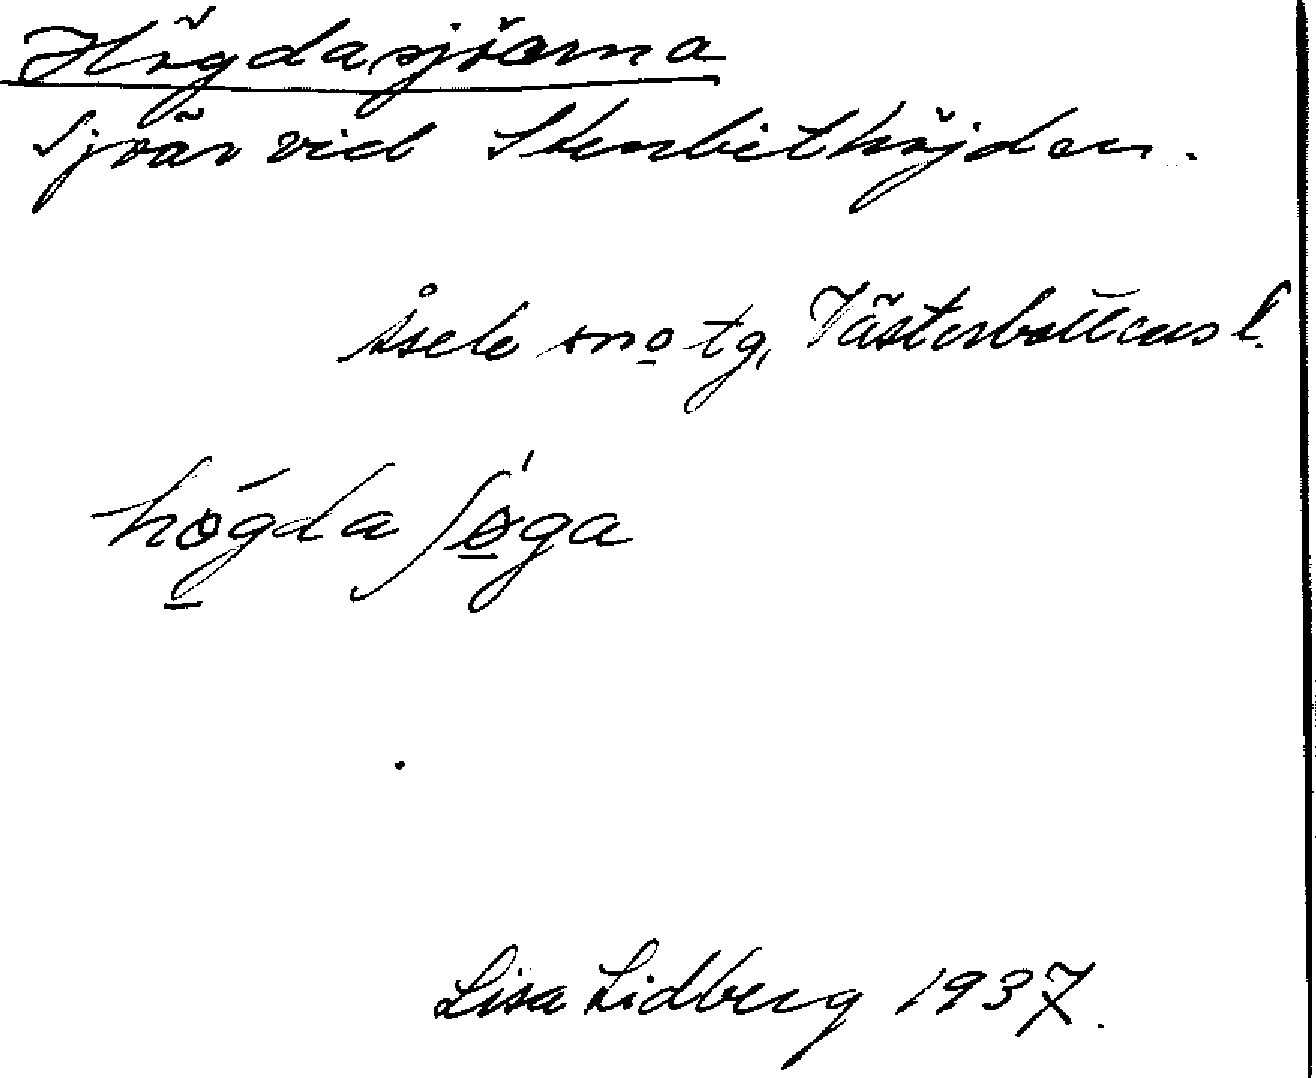 Högdasjöarna
Sjöar vid Stenbithöjden.
Åsele sn o tg, Västerbottens l.
hǿ̱gda ʃǿ̱ga
Lisa Lidberg 1937.